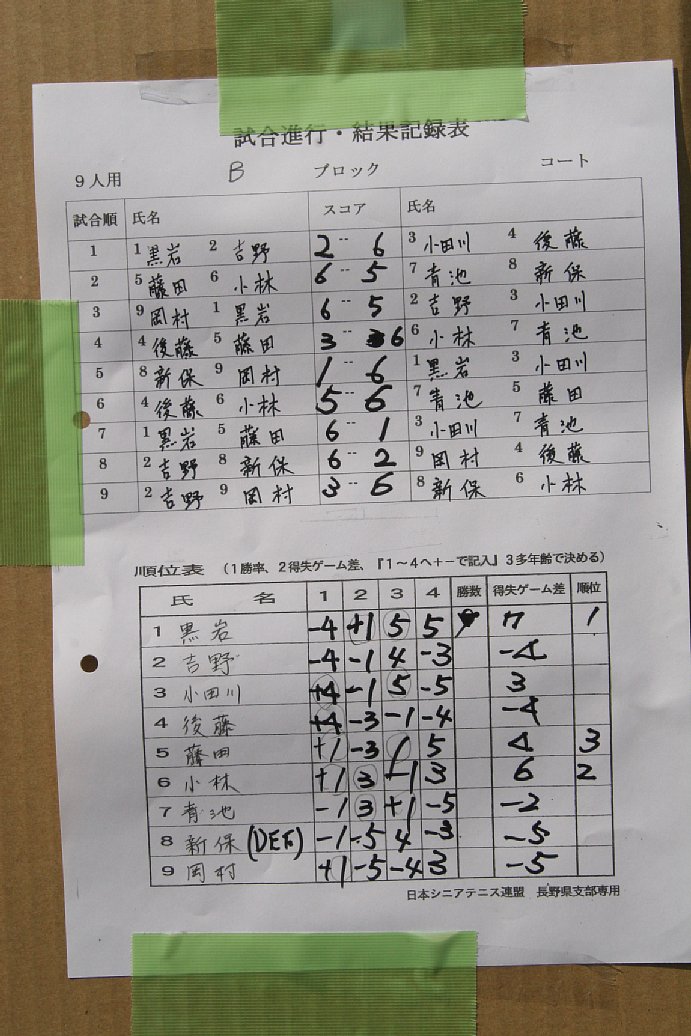 試合進行・結果記録表
9人用 B ブロック コート
試合順 氏名 スコア 氏名
1 1 黒岩 2 吉野 2 -- 6 3 小田川 4 後藤
2 5 藤田 6 小林 6 -- 5 7 青池 8 新保
3 9 岡村 1 黒岩 6 -- 5 2 吉野 3 小田川
4 4 後藤 5 藤田 3 -- 6 6 小林 7 青池
5 8 新保 9 岡村 1 -- 6 1 黒岩 3 小田川
6 4 後藤 6 小林 5 -- 6 7 青池 5 藤田
7 1 黒岩 5 藤田 6 -- 1 3 小田川 7 青池
8 2 吉野 8 新保 6 -- 2 9 岡村 4 後藤
9 2 吉野 9 岡村 3 -- 6 8 新保 6 小林
順位表 (1勝率、2得失ゲーム差、『1〜4へ+−で記入』3多年齢で決める)
氏 名 1 2 3 4 勝数 得失ゲーム差 順位
1 黒岩 -4 +1 5 5 7 1
2 吉野 -4 -1 4 -3 -4
3 小田川 +4 -1 5 -5 3
4 後藤 +4 -3 -1 -4 -4
5 藤田 +1 -3 1 5 4 3
6 小林 +1 3 -1 3 6 2
7 青池 -1 3 +1 -5 -2
8 新保 (DEF) -1 -5 4 -3 -5
9 岡村 +1 -5 -4 3 -5
日本シニアテニス連盟 長野県支部専用